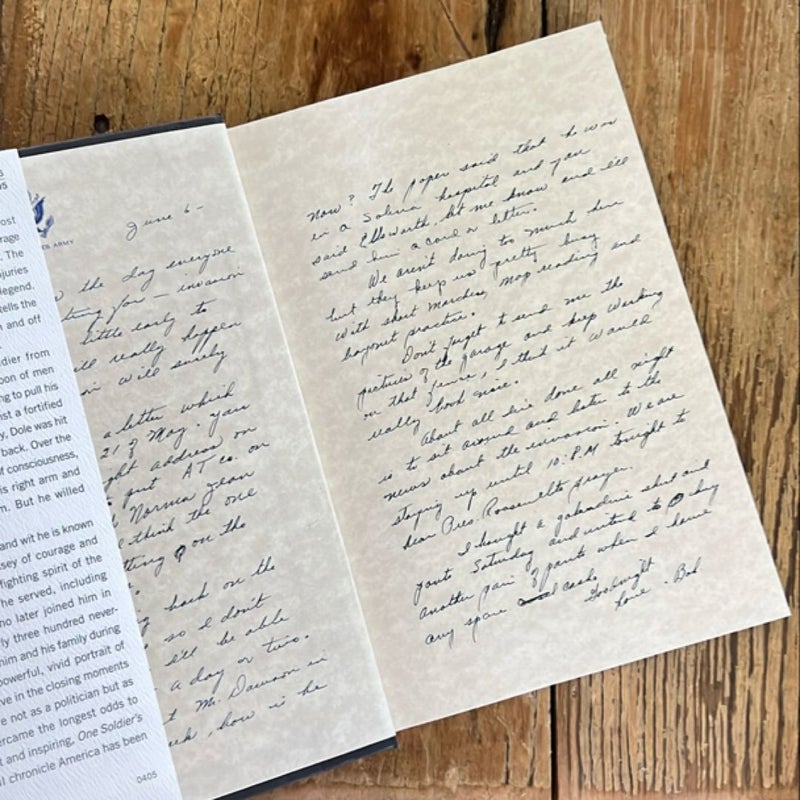 ost
rage
The
njuries
legend.
tells the
n and off
dier from
oon of men
ng to pull his
nst a fortified
y, Dole was hit
back. Over the
f consciousness,
is right arm and
m. But he willed
and wit he is known
ssey of courage and
fighting spirit of the
he served, including
no later joined him in
rly three hundred never-
him and his family during
powerful, vivid portrait of
ve in the closing moments
e not as a politician but as
ercame the longest odds to
and inspiring, One Soldier's
l chronicle America has been
0405
ES ARMY
June 6-
the day everyone
ting for - invasion
little early to
ill really happen
will surely
a letter which
21 of May. you
ght address on
put AT co. on
Norma Jean
think the one
thing on the
back on the
so I don't
I'll be able
a day or two.
Mr. Dawson in
how is he
now? The paper said that he was
in a Salina hospital and you
said Ellsworth. Let me know and I'll
send him a card or letter.
We aren't doing to much here
but they keep us pretty busy
with short marches, map reading and
bayonet practice.
Don't forget to send me the
pictures of the garage and keep working
on that fence, I think it would
really look nice.
About all I've done all night
is to sit around and listen to the
news about the invasion. We are
staying up until 10:P.M tonight to
hear Pres. Roosevelts prayer.
I bought a gabardine shirt and
pants Saturday and intend to buy
another pair of pants when I have
any spare cash.
Goodnight
Love - Bob